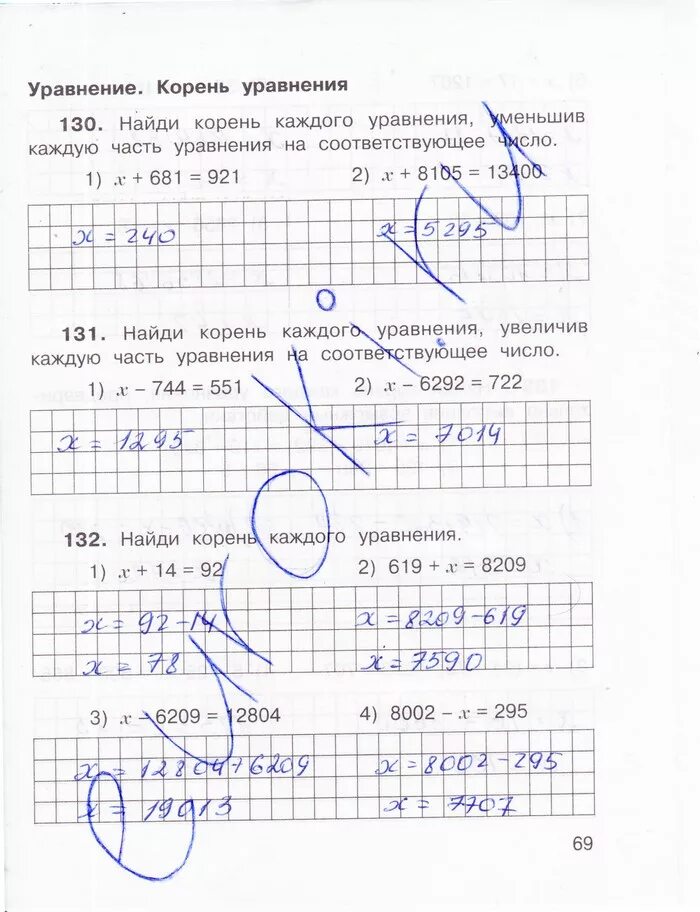 Уравнение. Корень уравнения
130. Найди корень каждого уравнения, уменьшив
каждую часть уравнения на соответствующее число.
1) x + 681 = 921 2) x + 8105 = 13400
x = 240 x = 5295
131. Найди корень каждого уравнения, увеличив
каждую часть уравнения на соответствующее число.
1) x − 744 = 551 2) x − 6292 = 722
x = 1295 x = 7014
132. Найди корень каждого уравнения.
1) x + 14 = 92 2) 619 + x = 8209
x = 92-14 x = 8209-619
x = 78 x = 7590
3) x − 6209 = 12804 4) 8002 − x = 295
x = 12804+6209 x = 8002-295
x = 19013 x = 7707
69